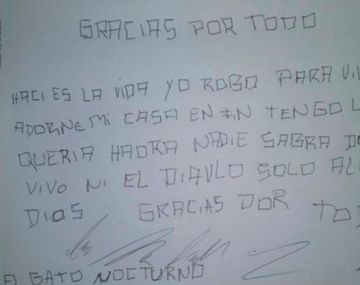 GRACIAS POR TODO
HACI ES LA VIDA YO ROBO PARA VIV
ADORNE MI CASA EN FIN TENGO L
QUERIA HAORA NADIE SABRA DO
VIVO NI EL DIAVLO SOLO AL
DIOS GRACIAS DOR TOD
EL GATO NOCTURNO